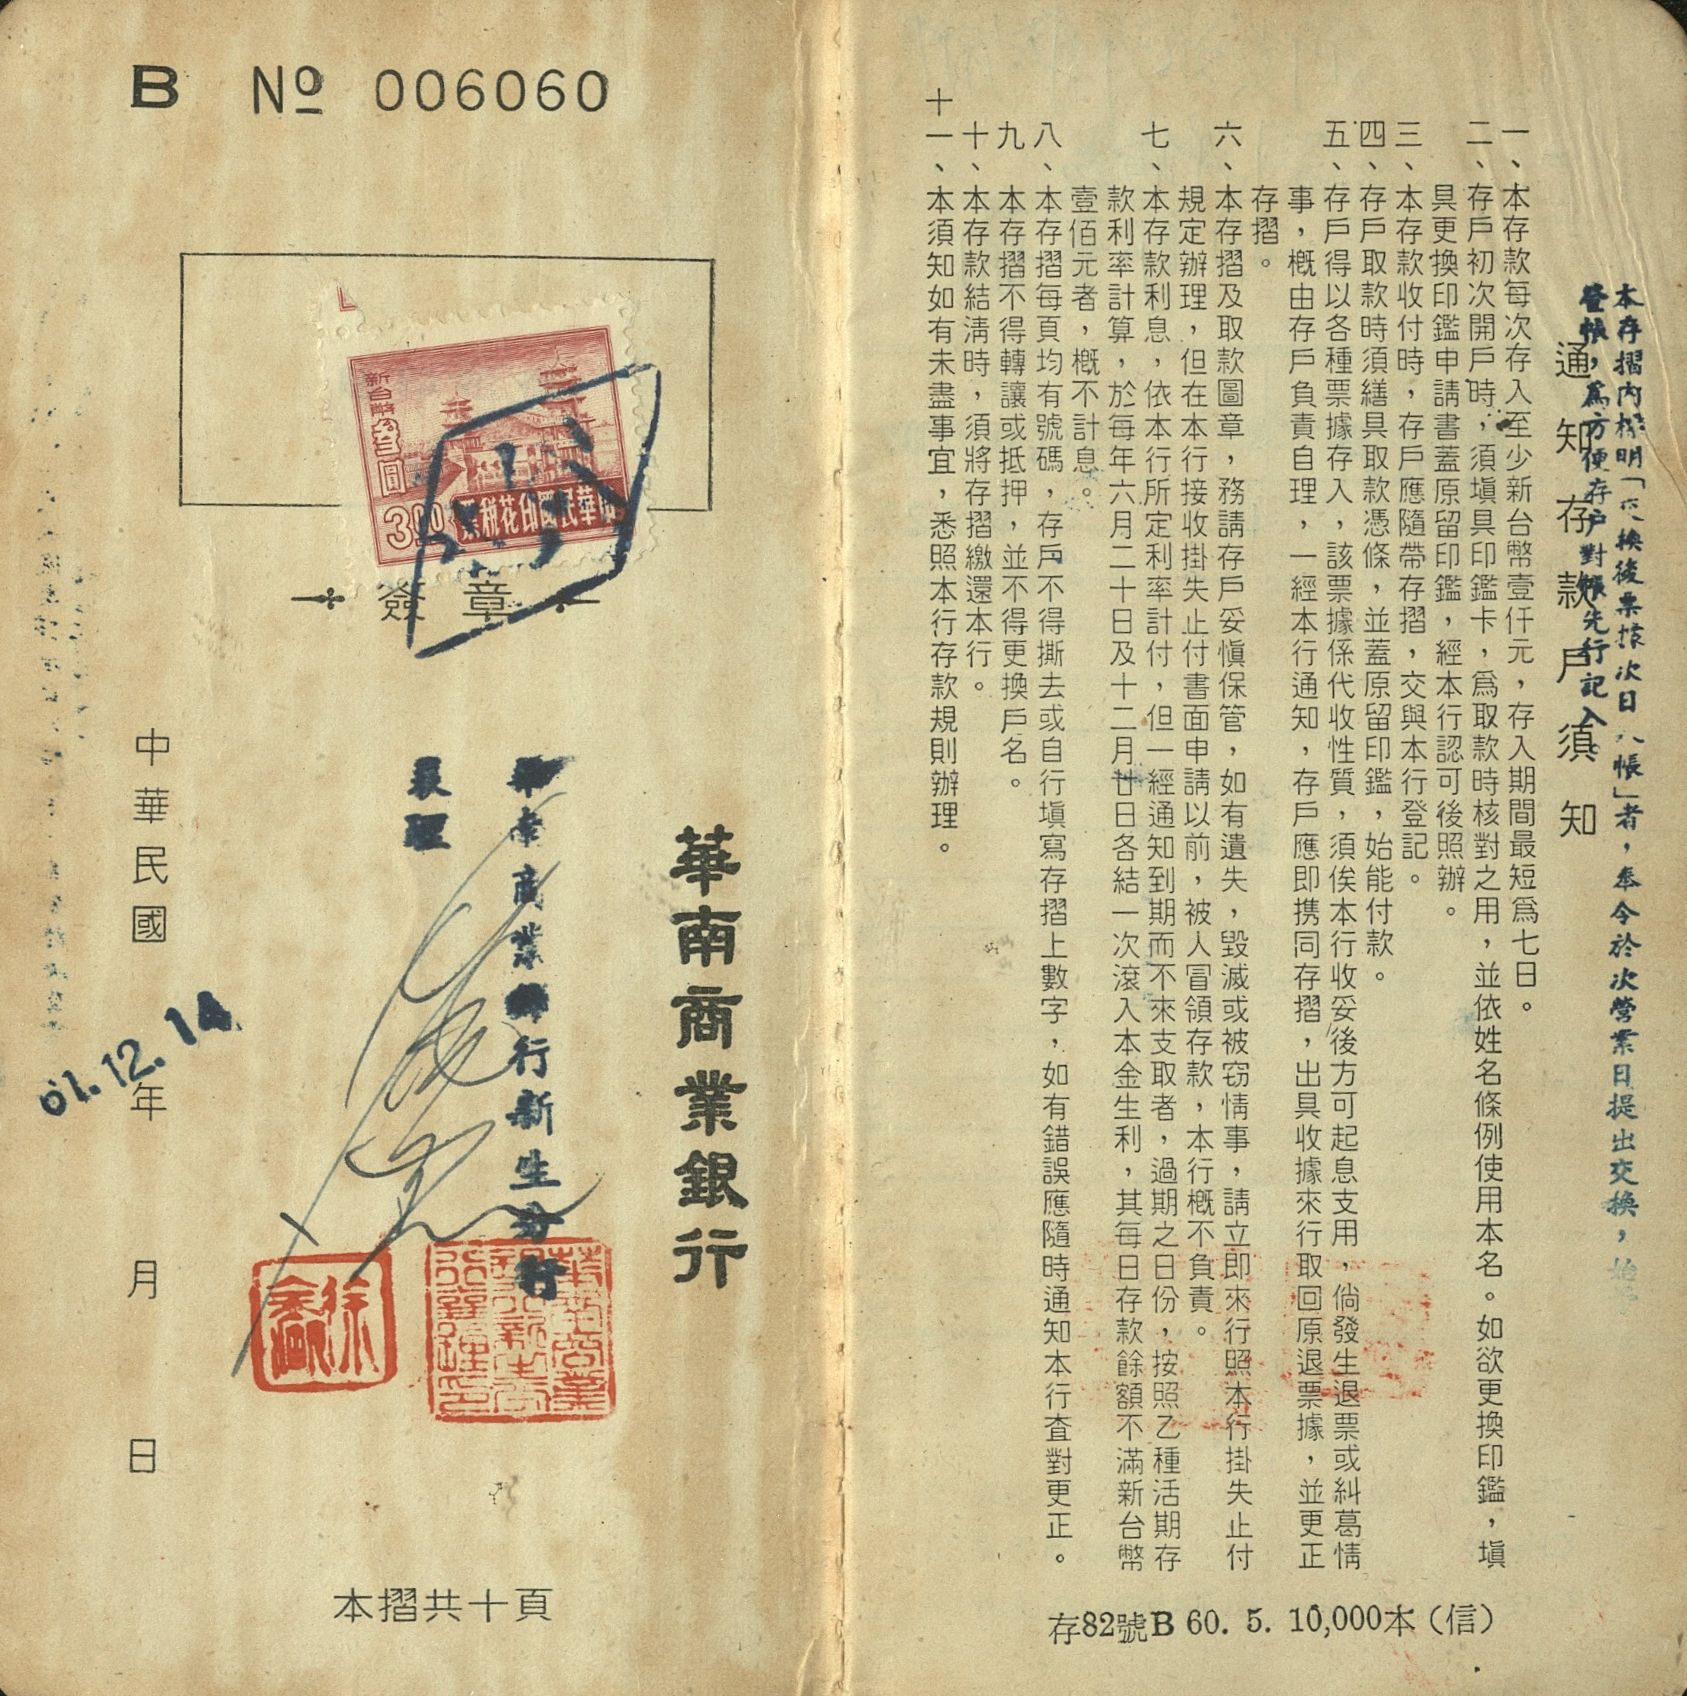 本存摺內標明「交換後票據次日入帳」者，奉令於次營業日提出交換，始
登帳，為方便存戶對帳先行記入。
通知存款戶須知
一、本存款每次存入至少新台幣壹仟元，存入期間最短爲七日。
二、存戶初次開戶時，須塡具印鑑卡，爲取款時核對之用，並依姓名條例使用本名。如欲更換印鑑，塡
具更換印鑑申請書蓋原留印鑑，經本行認可後照辦。
三、本存款收付時，存戶應隨帶存摺，交與本行登記。
四、存戶取款時須繕具取款憑條，並蓋原留印鑑，始能付款。
五、存戶得以各種票據存入，該票據係代收性質，須俟本行收妥後方可起息支用，倘發生退票或糾葛情
事，槪由存戶負責自理，一經本行通知，存戶應即携同存摺，出具收據來行取回原退票據，並更正
存摺。
六、本存摺及取款圖章，務請存戶妥愼保管，如有遺失，毀滅或被窃情事，請立即來行照本行掛失止付
規定辦理，但在本行接收掛失止付書面申請以前，被人冒領存款，本行槪不負責。
七、本存款利息，依本行所定利率計付，但一經通知到期而不來支取者，過期之日份，按照乙種活期存
款利率計算，於每年六月二十日及十二月廿日各結一次滾入本金生利，其每日存款餘額不滿新台幣
壹佰元者，槪不計息。
八、本存摺每頁均有號碼，存戶不得撕去或自行塡寫存摺上數字，如有錯誤應隨時通知本行査對更正。
九、本存摺不得轉讓或抵押，並不得更換戶名。
十、本存款結淸時，須將存摺繳還本行。
十一、本須知如有未盡事宜，悉照本行存款規則辦理。
存82號B 60. 5. 10,000本（信）
B No 006060
新台幣叁圓
3.00
中華民國印花稅票
簽章
華南商業銀行
華南商業銀行新生分行
襄理
中華民國 年 月 日
61.12.14
本摺共十頁